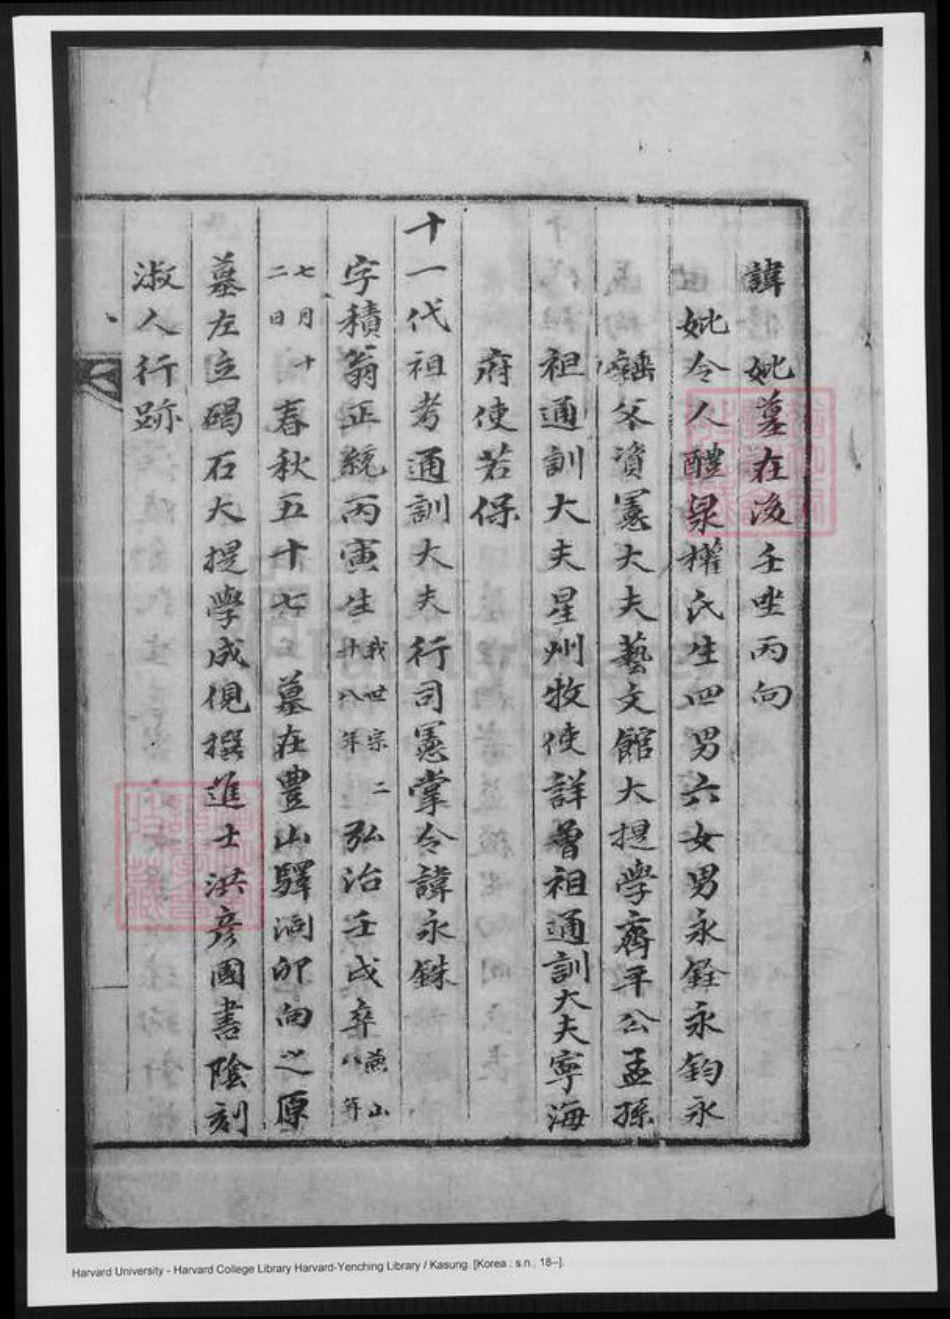 諱 妣墓在後壬坐丙向
妣令人醴泉權氏生四男六女男永銓永鈞永
銖父資憲大夫藝文館大提學齊平公孟孫
祖通訓大夫星州牧使詳曾祖通訓大夫寧海
府使若保
十一代祖考通訓大夫行司憲掌令諱永銖
字積翁正統丙寅生我世宗二十八年弘治壬戌卒燕山八年
七月十二日春秋五十七 墓在豊山驛洞卯向之原
墓左立碣石大提學成俔撰進士洪彦國書陰刻
淑人行跡
Harvard University - Harvard College Library Harvard-Yenching Library / Kasung. [Korea : s.n., 18--].